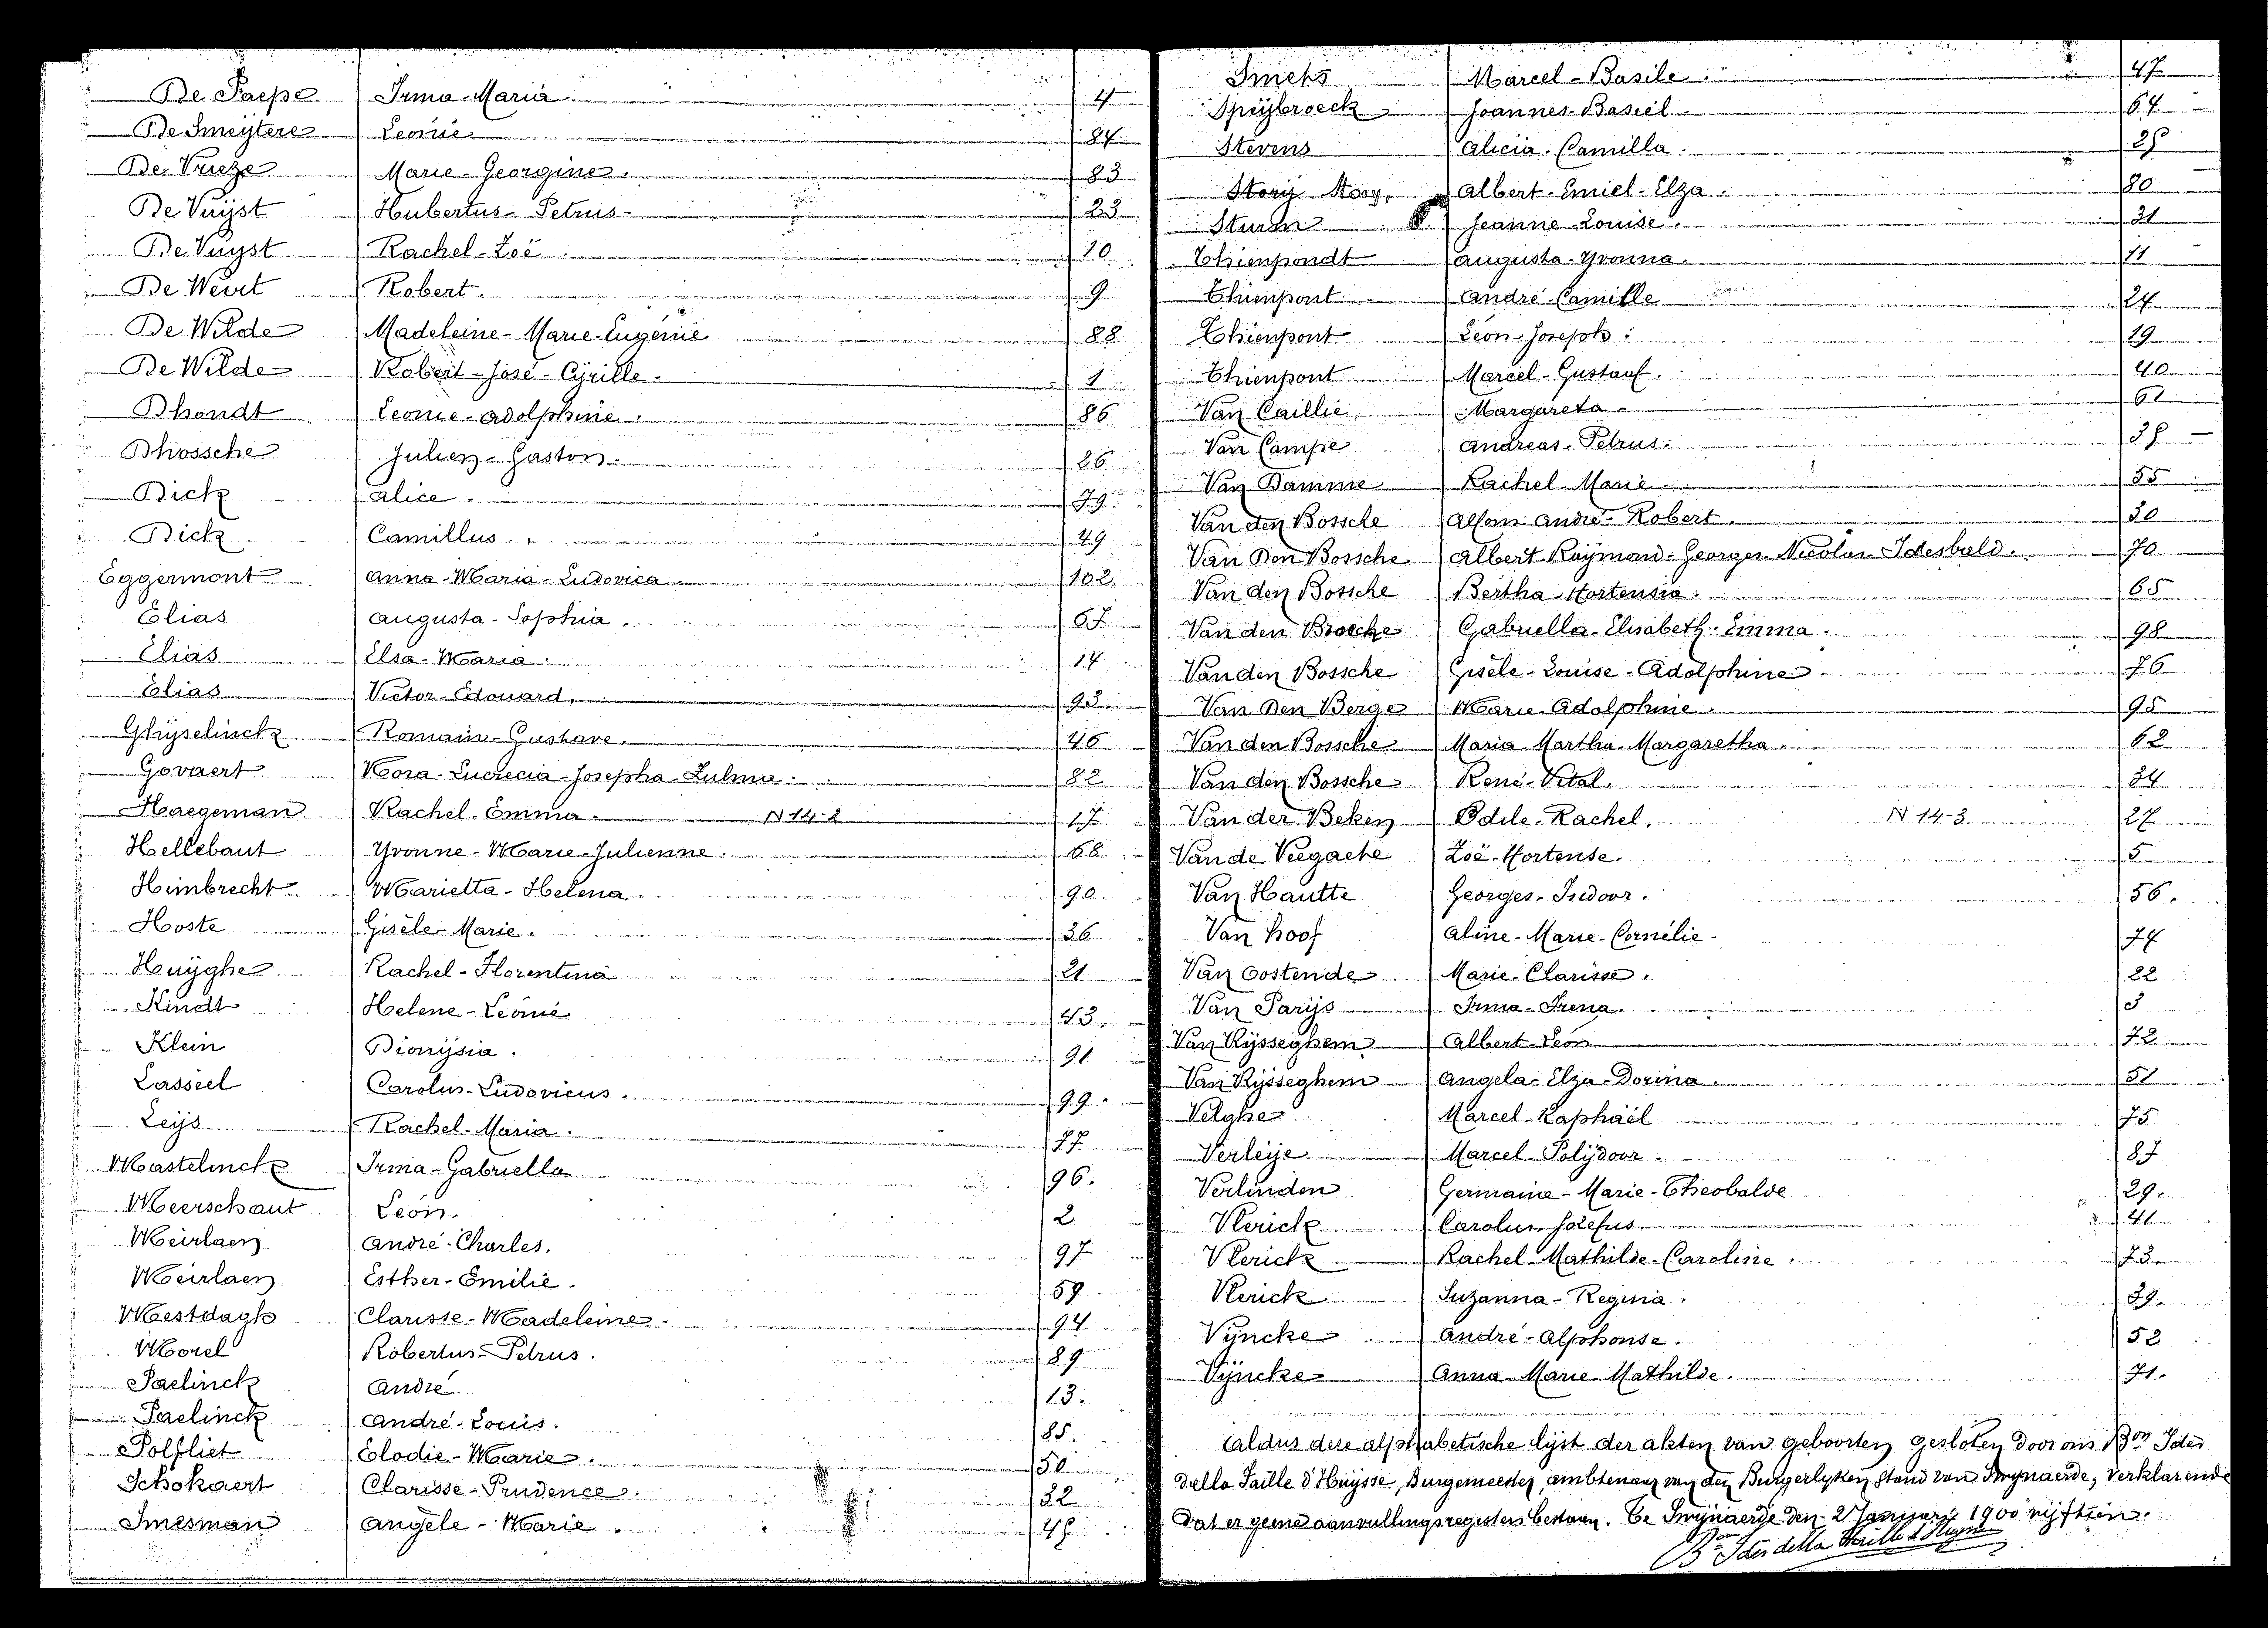 De Paepe Irma-Maria. 4
De Smeÿtere Leonie 84
De Vrieze Marie-Georgine. 83
De Vuÿst Hubertus-Petrus- 23
De Vuyst Rachel-Zoë 10
De Weirt Robert. 9
De Wilde Madeleine-Marie-Eugénie 88
De Wilde Robert-José-Cÿrille- 1
Dhondt Leonie-Adolphine. 86
Dhossche Julien-Gaston. 26
Dick Alice. 79
Dick Camillus. 49
Eggermont Anna-Maria-Ludovica 102.
Elias Augusta-Sophia. 67
Elias Elsa-Maria. 14
Elias Victor-Edouard. 93
Ghÿselinck Romain-Gustave. 46
Govaert Nora-Lucrecia-Josepha-Zulma- 82
Haegeman Rachel-Emma- N 14-2 17
Hellebaut Yvonne-Marie-Julienne. 68
Himbrecht Marietta-Helena. 90
Hoste Gisèle-Marie. 36
Huÿghe Rachel-Florentina 21
Kindt Helene-Léonie 43.
Klein Dionÿsia. 91
Lasseel Carolus-Ludovicus. 99.
Leÿs Rachel-Maria. 77
Mastelinck Irma-Gabriella 96.
Meerschaut Léon. 2
Meirlaen André-Charles. 97
Meirlaen Esther-Emilie. 59
Mestdagh Clarisse-Madeleine. 94
Morel Robertus-Petrus. 89
Paelinck André 13.
Paelinck André-Louis. 85.
Polfliet Elodie-Marie. 50
Schokaert Clarisse-Prudence. 32
Smesman Angèle-Marie.
Smets Marcel-Basile. 47
Speÿbroeck Joannes-Basiel 64
Stevens Alicia-Camilla.
Storÿ Story, Albert-Emiel-Elza. 80
Sturm Jeanne-Louise. 31
Thienpondt Augusta-Yvonna. 11
Thienpont André-Camille 24
Thienpont Léon-Joseph. 19
Thienpont Marcel-Gustaaf. 40
Van Caillie Margareta- 61
Van Campe Andreas-Petrus.
Van Damme Rachel-Marie. 55
Van den Bossche Alfons-André-Robert. 30
Van Den Bossche Albert-Raÿmond-Georges-Nicolas-Idesbald. 70
Van den Bossche Bertha-Hortensia. 65
Van den Broecke Gabriella-Elisabeth-Emma. 98
Van den Bossche Gisèle-Louise-Adolphine. 76
Van Den Berge Marie-Adolphine. 95
Van den Bossche Maria-Martha-Margaretha. 62
Van den Bossche René-Vital. 34
Van der Beken Odile-Rachel. N 14-3. 27
Van de Veegaete Zoë-Hortense. 5
Van Hautte Georges-Isidoor. 56.
Van hoof Aline-Marie-Cornélie- 74
Van Oostende Marie-Clarisse. 22
Van Parÿs Irma-Irena. 3
Van Rÿsseghem Albert-Léon 72
Van Rÿsseghem Angela-Elza-Dorina. 51
Velghe Marcel-Raphaël 75
Verleÿe Marcel-Polÿdoor. 87
Verlinden Germaine-Marie-Theobalde 29.
Vlerick Carolus-Josefus. 41
Vlerick Rachel-Mathilde-Caroline. 73
Vlerick Suzanna-Regina. 39.
Vÿncke André-Alphonse. 52
Vÿncke Anna-Marie-Mathilde. 71.
Aldus deze alphabetische lijst der akten van geboorten gesloten door ons Bon Ides
della Faille d'Huÿsse, Burgemeester, ambtenaar van den Burgerlyken stand van Swynaerde, verklarende
dat er geene aanvullingsregisters bestaan. Te Swÿnaerde den 2 Januari 1900 vijftien.
Bon Ides della Faille d'Huysse